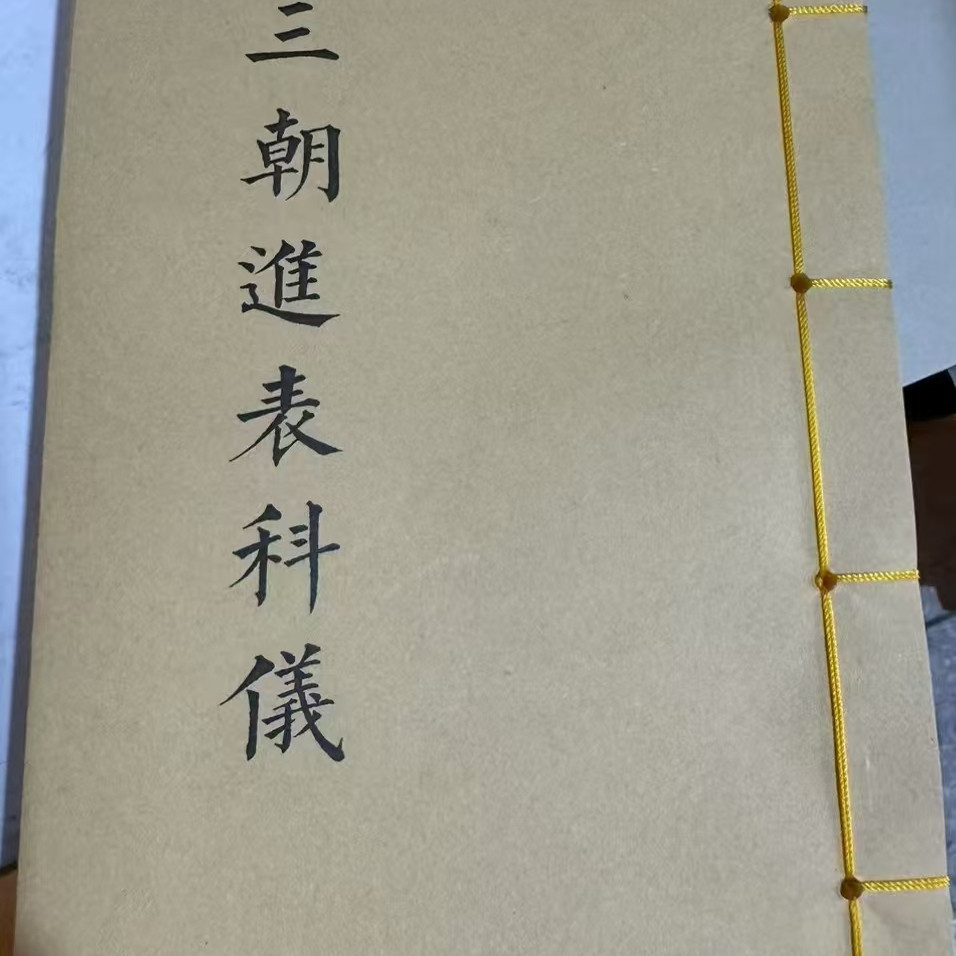 三朝進表科儀